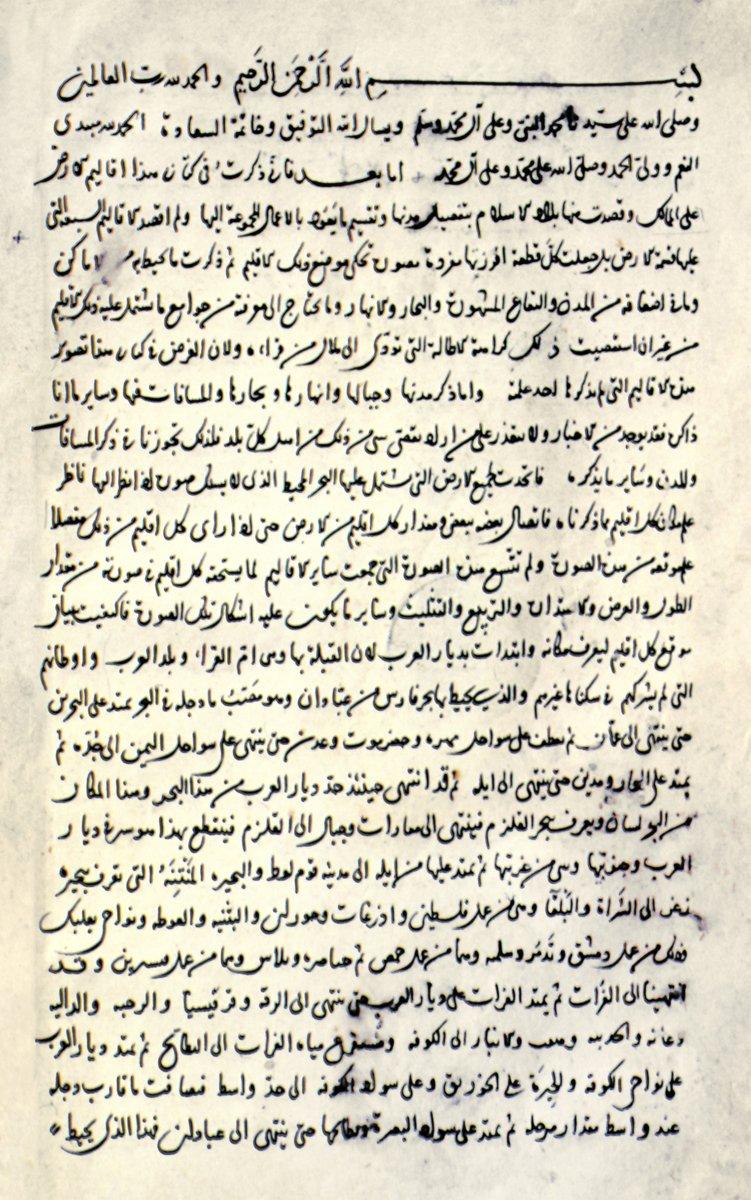 بسم الله الرَّحْمَن الرَّحِيم والحمد لله رب العالمين
وصلى الله على سيدنا محمد النبي وعلى آل محمد وسلم ونسال الله التوفيق وخاتمة السعادة الحمد لله مبدئ
النعم وولي الحمد وصلى الله على محمد وعلى آل محمد اما بعد فانى ذكرت فى كتابى هذا اقاليم الارض
على الممالك وقصدت منها بلاد الاسلام بتفصيل مدنها وتقسيم ما يعود بالاعمال المجموعة اليها ولم اقصد الاقاليم السبعة التى
عليها قسمة الارض بل جعلت كل قطعة افردتها مفردة مصورة تحكى موضع ذلك الاقليم ثم ذكرت ما يحيط به من الاماكن
وما فى اضعافه من المدن والبقاع المشهورة والبحار والانهار وما يحتاج الى معرفته من جوامع ما يشتمل عليه ذلك الاقليم
من غير ان استقصيت ذلك كراهة الاطالة التى تؤدى الى ملال من قراه ولان الغرض فى كتابى هذا تصوير
هذه الاقاليم التى لم يذكرها احد علمته واما ذكر مدنها وجبالها وانهارها وبحارها والمسافات فيها وساير ما انا
ذاكره فقد يوجد من الاخبار ولا يتعذر على من اراد تقصى شى من ذلك من اهل كل بلد فلذلك تجوزنا فى ذكر المسافات
والمدن وساير ما يذكره فاتخذت لجميع الارض التى يشتمل عليها البحر المحيط الذى لا يسلك صورة اذا نظر اليها ناظر
علم مكان كل اقليم مما ذكرناه واتصال بعضه ببعض ومقدار كل اقليم من الارض حتى اذا راى كل اقليم من ذلك مفصلا
علم موقعه من هذه الصورة ولم تتسع هذه الصورة التى جمعت ساير الاقاليم لما يستحقه كل اقليم فى صورته من مقدار
الطول والعرض والاستدارة والتربيع والتثليث وساير ما يكون عليه اشكال تلك الصورة فاكتفيت ببيان
موقع كل اقليم ليعرف مكانه وابتدات بديار العرب لان القبلة بها وهى ام القرى وبلد العرب واوطانهم
التى لم يشركهم فى سكناها غيرهم والذى يحيط بها بحر فارس من عبادان وهو مصب ما دجلة فى البحر يمتد على البحرين
حتى ينتهى الى عمان ثم يعطف على سواحل مهره وحضرموت وعدن حتى ينتهى على سواحل اليمن الى جُدّه ثم
يمتد على الجار ومدين حتى ينتهى الى ايله ثم قد انتهى حينئذ حدّ ديار العرب من هذا البحر وهذا المكان
من البحر لسان ويعرف ببحر القلزم فينتهى الى وجبال الى القلزم فينقطع بهذا هو شرقى ديار
العرب وجنوبها وشى من غربتها ثم يمتد عليها من ايله الى مدينه قوم لوط والبحيره المُنْتِنَة التى تعرف ببحيره
زغر الى الشَّراة والبَلْقا وهى من عمل فلسطين واذرعات وحوران والبثنيه والغوطه ونواحى بعلبك
وذلك من عمل دمشق وتَدْمُر وسلميه وهما من عمل حمص ثم خناصره وبالس وهما من عمل قنسرين وقد
انتهينا الى الفُرَات ثم يمتد الفرات على ديار العرب حتى ينتهى الى الرقه وقرقيسيا والرحبه والداليه
وعانه والحديثه وهيت والانبار الى الكوفه ومستفرغ مياه الفرات الى البطايح ثم تمتد ديار العرب
على نواحى الكوفه والحيرة على الخورنق وعلى سواد الكوفه الى حد واسط فصاقت ما قارب دجله
عند واسط مقدار مرحله ثم يمتد على سواد البصرة وبطايحها حتى ينتهى الى عبادان فهذا الذى يحيط